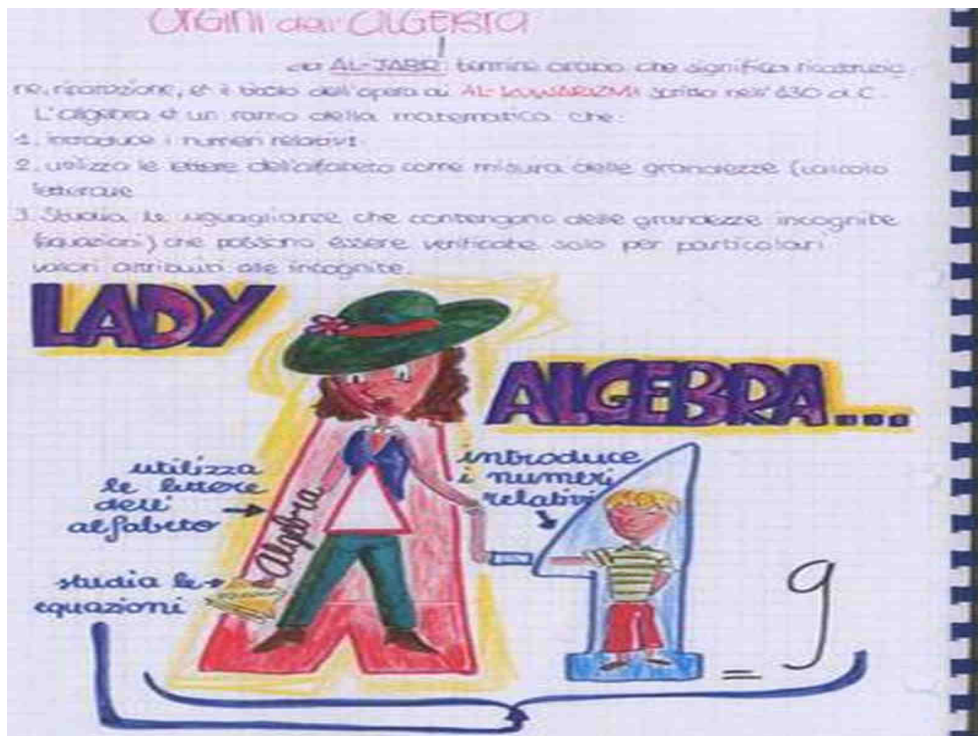 Origini dell'ALGEBRA
da AL-JABR: termine arabo che significa ricostruzio-
ne, riparazione, è il titolo dell'opera di AL-KUWARIZMI scritto nell'830 d.C.
L'algebra è un ramo della matematica che:
1. introduce i numeri relativi.
2. utilizza le lettere dell'alfabeto come misura delle grandezze (calcolo
letterale
3. Studia le uguaglianze che contengono delle grandezze incognite
(equazioni) che possono essere verificate solo per particolari
valori attribuiti alle incognite.
LADY
ALGEBRA...
utilizza
le lettere
dell'
alfabeto
introduce
i numeri
relativi
Algebra
studia le
equazioni
A-1 = 9